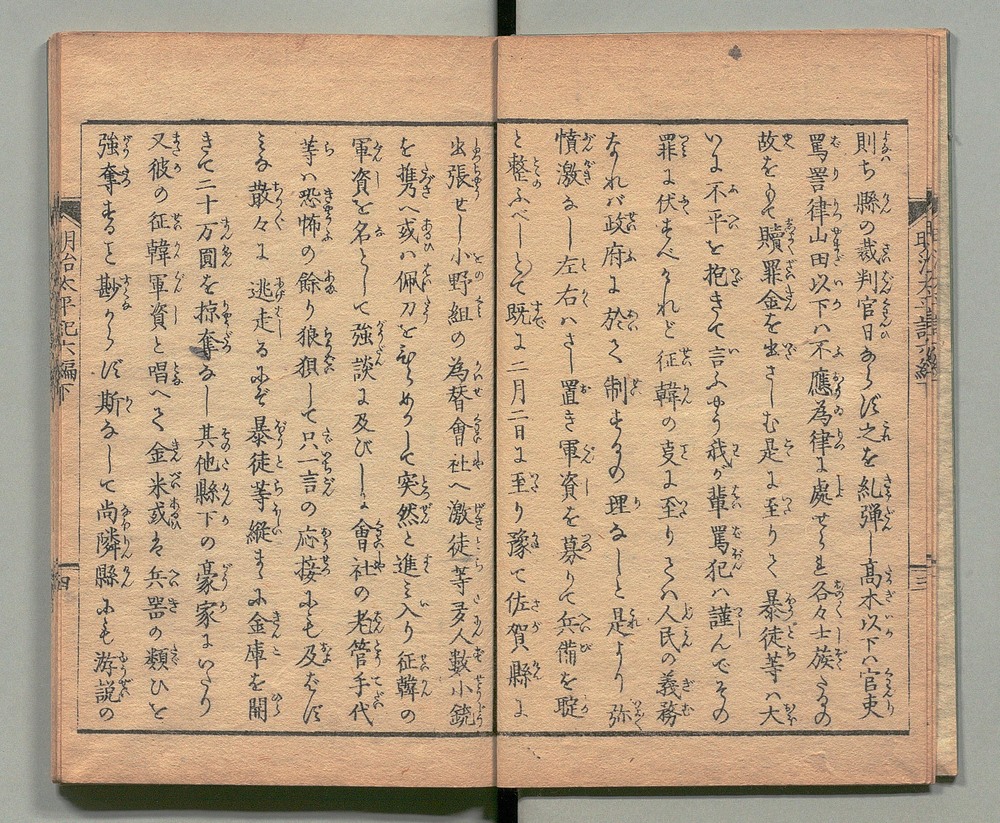 則ち縣の裁判官日ならず之を糺弾し高木以下ハ官吏
罵詈律山田以下ハ不應為律に處せられ各々士族たるの
故をもて贖罪金を出さしむ是に至りて暴徒等ハ大
いに不平を抱きて言ふやう我が輩罵犯ハ謹んでその
罪に伏すべけれど征韓の叓に至りてハ人民の義務
なれバ政府に於て制するの理なしと是より弥
憤激なし左右ハさし置き軍資を募りて兵備を
と整ふべしとて既に二月二日に至り豫て佐賀縣に
出張せし小野組の為替會社へ激徒等多人數小銃
を携へ或ハ佩刀をひらめかして突然と進ミ入り征韓の
軍資を名として強談に及びしに會社の老管手代
等ハ恐怖の餘り狼狽して只一言の応接にも及ばず
ミな散々に逃走るにぞ暴徒等縦まゝに金庫を開
きて二十万圓を掠奪なし其他縣下の豪家にいたり
又彼の征韓軍資と唱へて金米或は兵器の類ひを
強奪すること尠からず斯なして尚隣縣にも游説の
明治太平記六編下
三
四